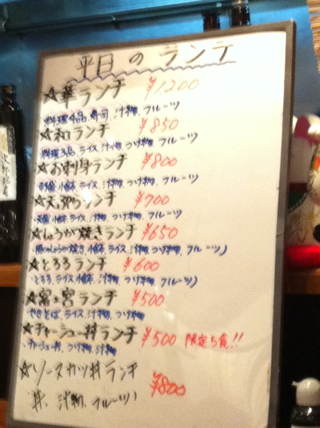 平日のランチ
☆華ランチ ¥1,200
料理4品、寿司、汁物、フルーツ
☆和ランチ ¥850
料理3品、ライス、汁物、つけ物、フルーツ
☆お刺身ランチ ¥800
小鉢、ライス、汁物、つけ物、フルーツ
☆天ぷらランチ ¥700
小鉢、ライス、汁物、つけ物、フルーツ
☆しょうが焼きランチ ¥650
小鉢、ライス、汁物、つけ物、フルーツ
☆とろろランチ ¥600
とろろ、ライス、小鉢、汁物、つけ物、フルーツ
☆宮・宮ランチ ¥500
やきそば、ライス、汁物、つけ物
☆チャーシュー丼ランチ ¥500 限定5食!!
チャーシュー丼、つけ物、汁物
☆ソースカツ丼ランチ ¥800
丼、汁物、フルーツ